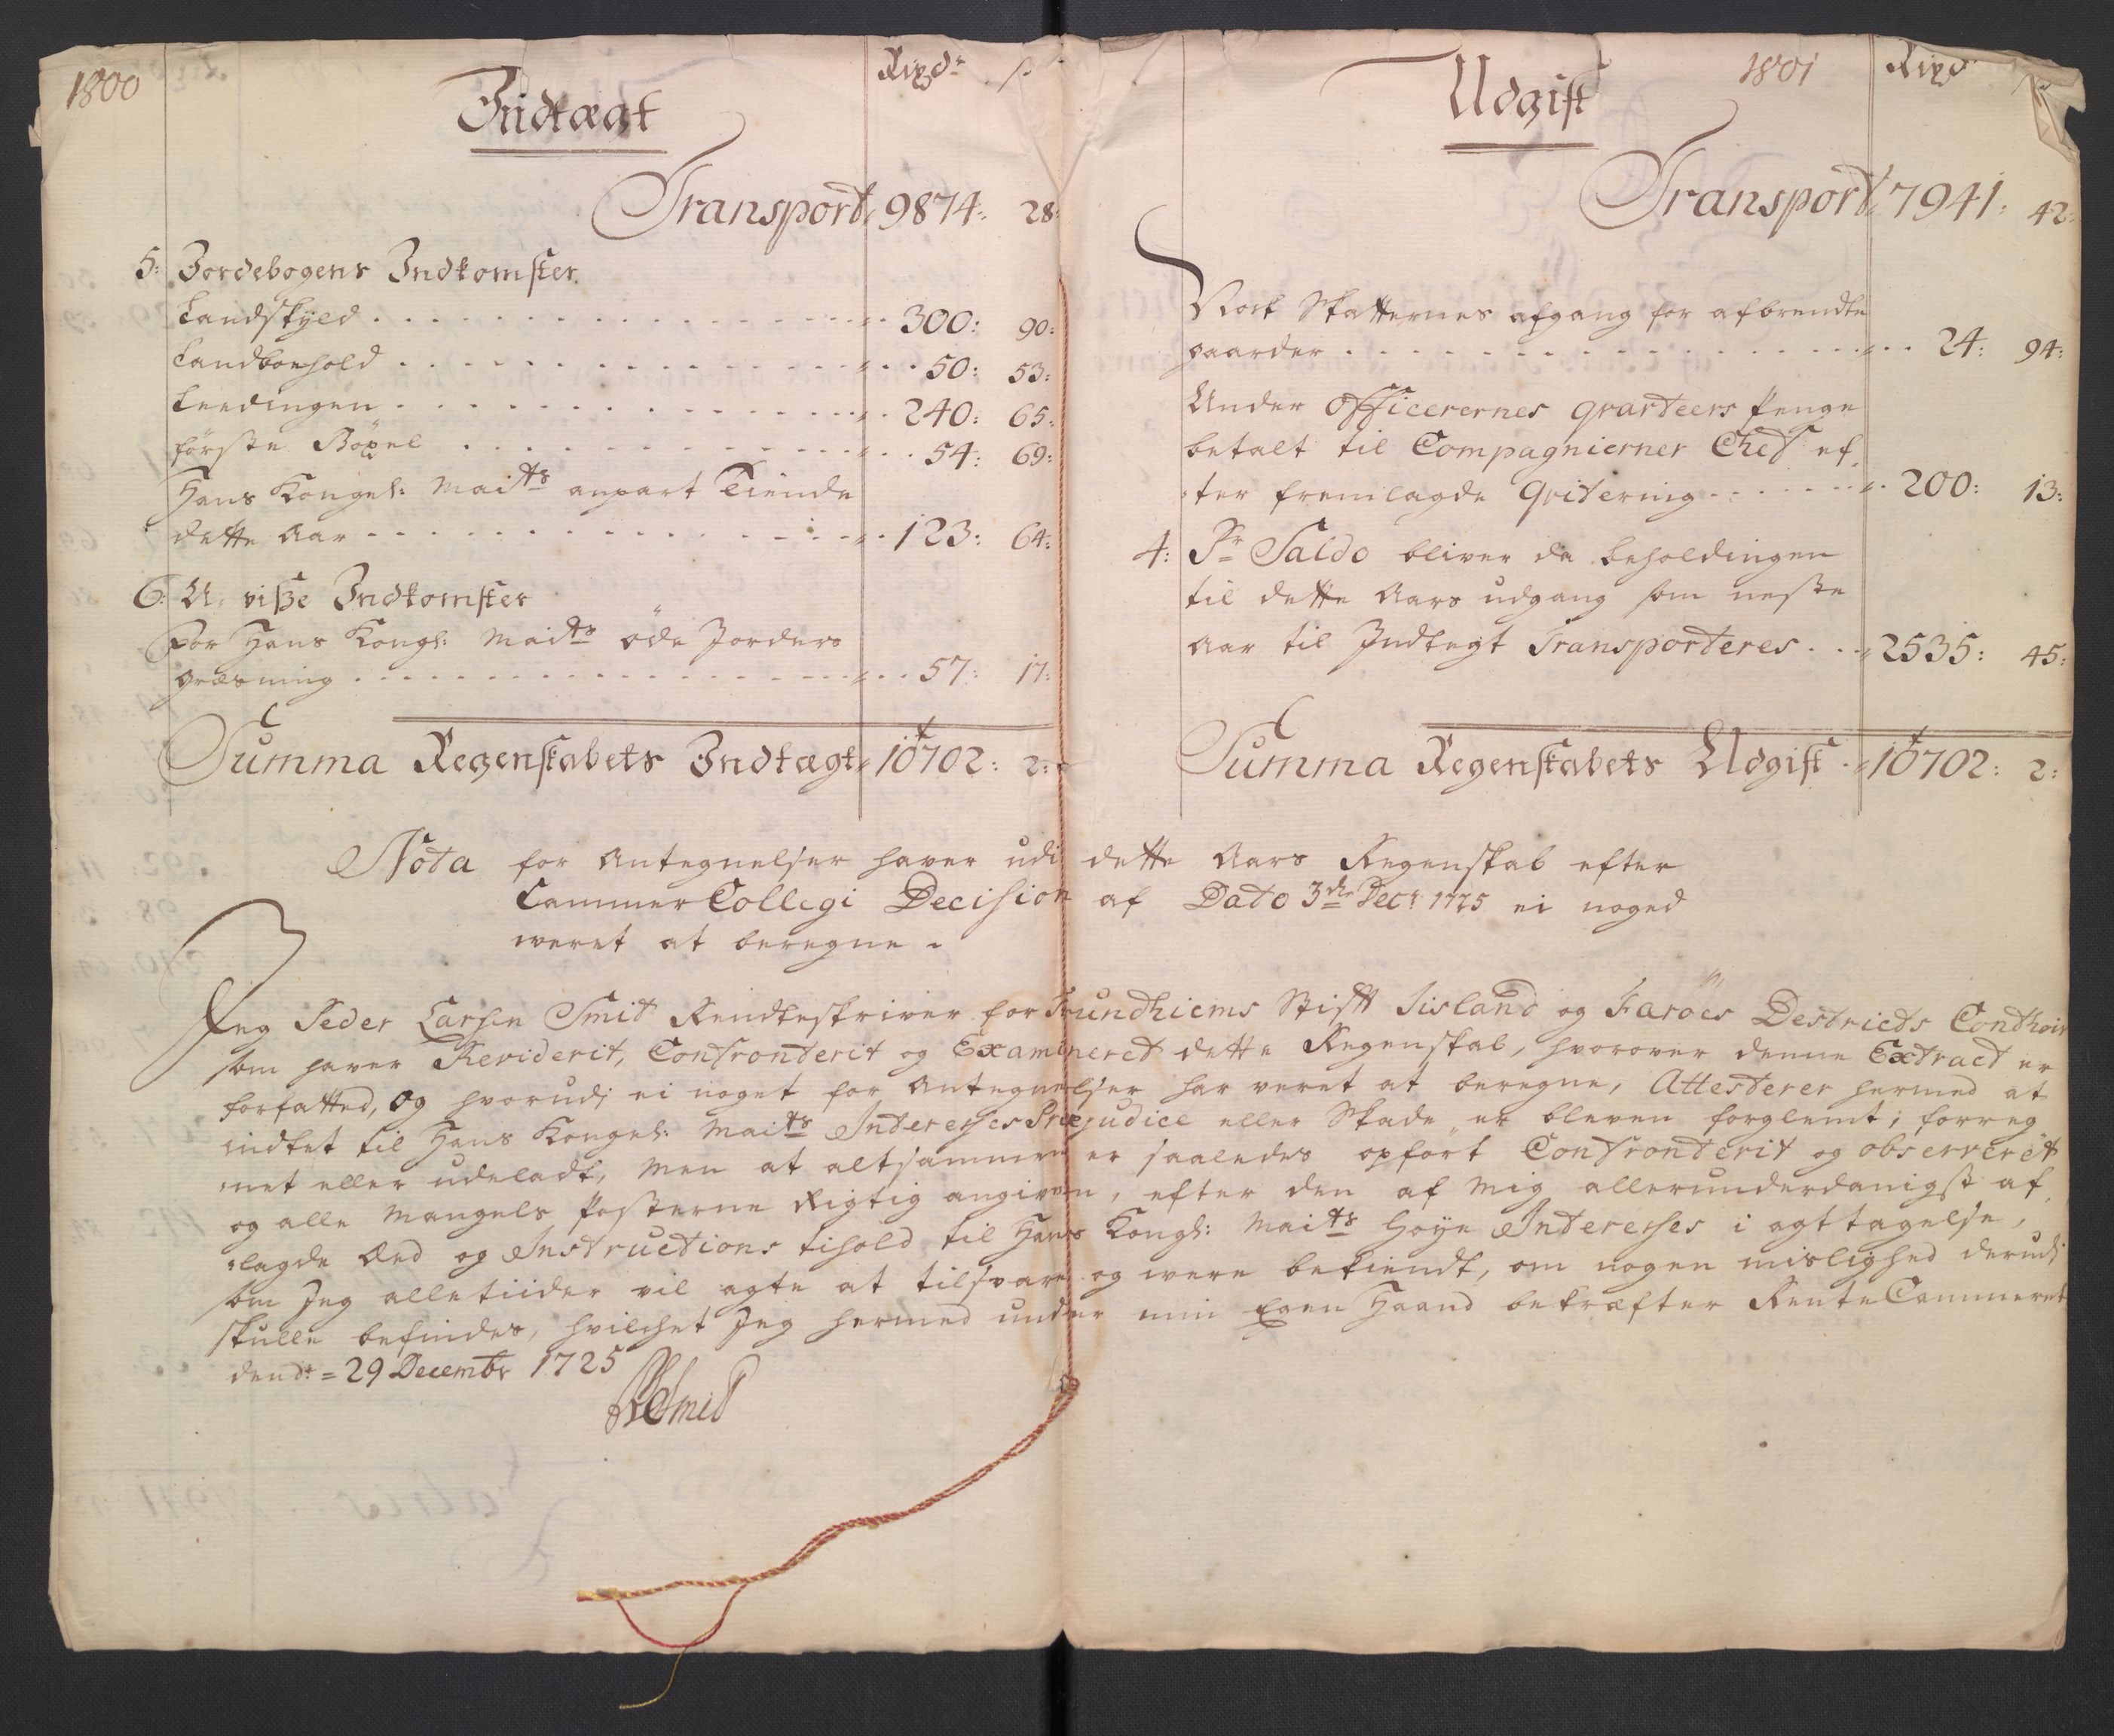 1800
Rixdr ß
Indtægt
Transport 9874: 28:
5: Jordebogens Indkomster.
Landskyld . . . 300: 90:
Landboehold . . . 50: 53:
Leedingen . . . 240: 65:
Förste Böxel . . . 54: 69:
Hans Kongel: Maits anpart Tiende
dette Aar . . . 123: 64:
6: U-visse Indkomster
For Hans Kongl: Maits öde Jorders
græsning . . . 57: 17:
Summa Regenskabets Indtægt 10702: 2:
1801
Rixdr ß
Udgift
Transport 7941: 42:
Nock Skatternes afgang for afbrendte
gaarder . . . 24: 94:
Under Officerernes qvarteers Penge
betalt til Compagnierner Chef ef-
ter fremlagde Qvitering . . . 200: 13:
4: Pr Saldo bliver da beholdingen
til dette Aars udgang som neste
Aar til Indtegt Transporteres . . . 2535: 45:
Summa Regenskabets Udgift . 10702: 2:
Nota for Antegnelser haver udi dette Aars Regenskab efter
Cammer Collegi Decision af Dato 3die Decr 1725 ei noged
weret at beregne.
Jeg Peder Larsen Smit Rendteskriver for Trundhiems Stift Iisland og Faröes Destricts Conthoir
som haver Reviderit, Confronterit og Examineret dette Regenskab, hvorover denne Extract er
forfatted, og hvorudi ei noget for Antegnelser har veret at beregne, Attesterer hermed at
indtet til Hans Kongel: Maits Interesses Præjudice eller Skade er bleven forglemt, forreg
net eller udeladt, Men at altsammen er saaledes opfört Confronterit og observeret
og alle Mangels Posterne Rigtig angiven, efter den af Mig allerunderdanigst af
lagde Æed og Instructions tihold til Hans Kongl: Maits Höye Interesses i agttagelse,
som Jeg alletiider vil agte at tilsvare og were bekiendt, om nogen mislighed derudi
skulle befindes, hvilchet Jeg hermed under min Egen Haand bekræfter Rente Cammeret
dend: 29 Decembr 1725
PLSmit